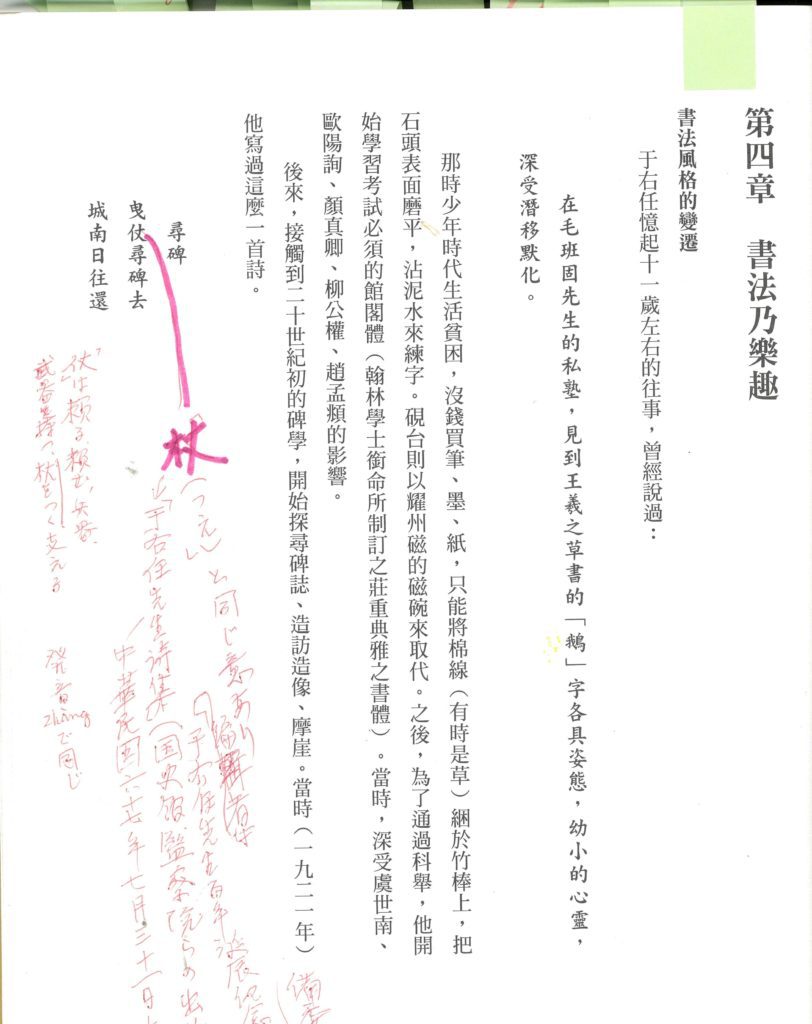 第四章　書法乃樂趣
書法風格的變遷
于右任憶起十一歲左右的往事，曾經說過：
在毛班固先生的私塾，見到王羲之草書的「鵝」字各具姿態，幼小的心靈，
深受潛移默化。
那時少年時代生活貧困，沒錢買筆、墨、紙，只能將棉線（有時是草）綑於竹棒上，把
石頭表面磨平，沾泥水來練字。硯台則以耀州磁的磁碗來取代。之後，為了通過科舉，他開
始學習考試必須的館閣體（翰林學士銜命所制訂之莊重典雅之書體）。當時，深受虞世南、
歐陽詢、顏真卿、柳公權、趙孟頫的影響。
後來，接觸到二十世紀初的碑學，開始探尋碑誌、造訪造像、摩崖。當時（一九二一年）
他寫過這麼一首詩。
尋碑
曳仗尋碑去
城南日往還
杖（つえ）と同じ意あり
編輯者侍
「于右任先生百年誕辰紀念
于右任先生诗集（国史館、監察院らの出
中華民国六十七年七月三十一日
「仗」は頼る、頼む、兵器、
武器等、杖をつく、支える
発音zhàngで同じ